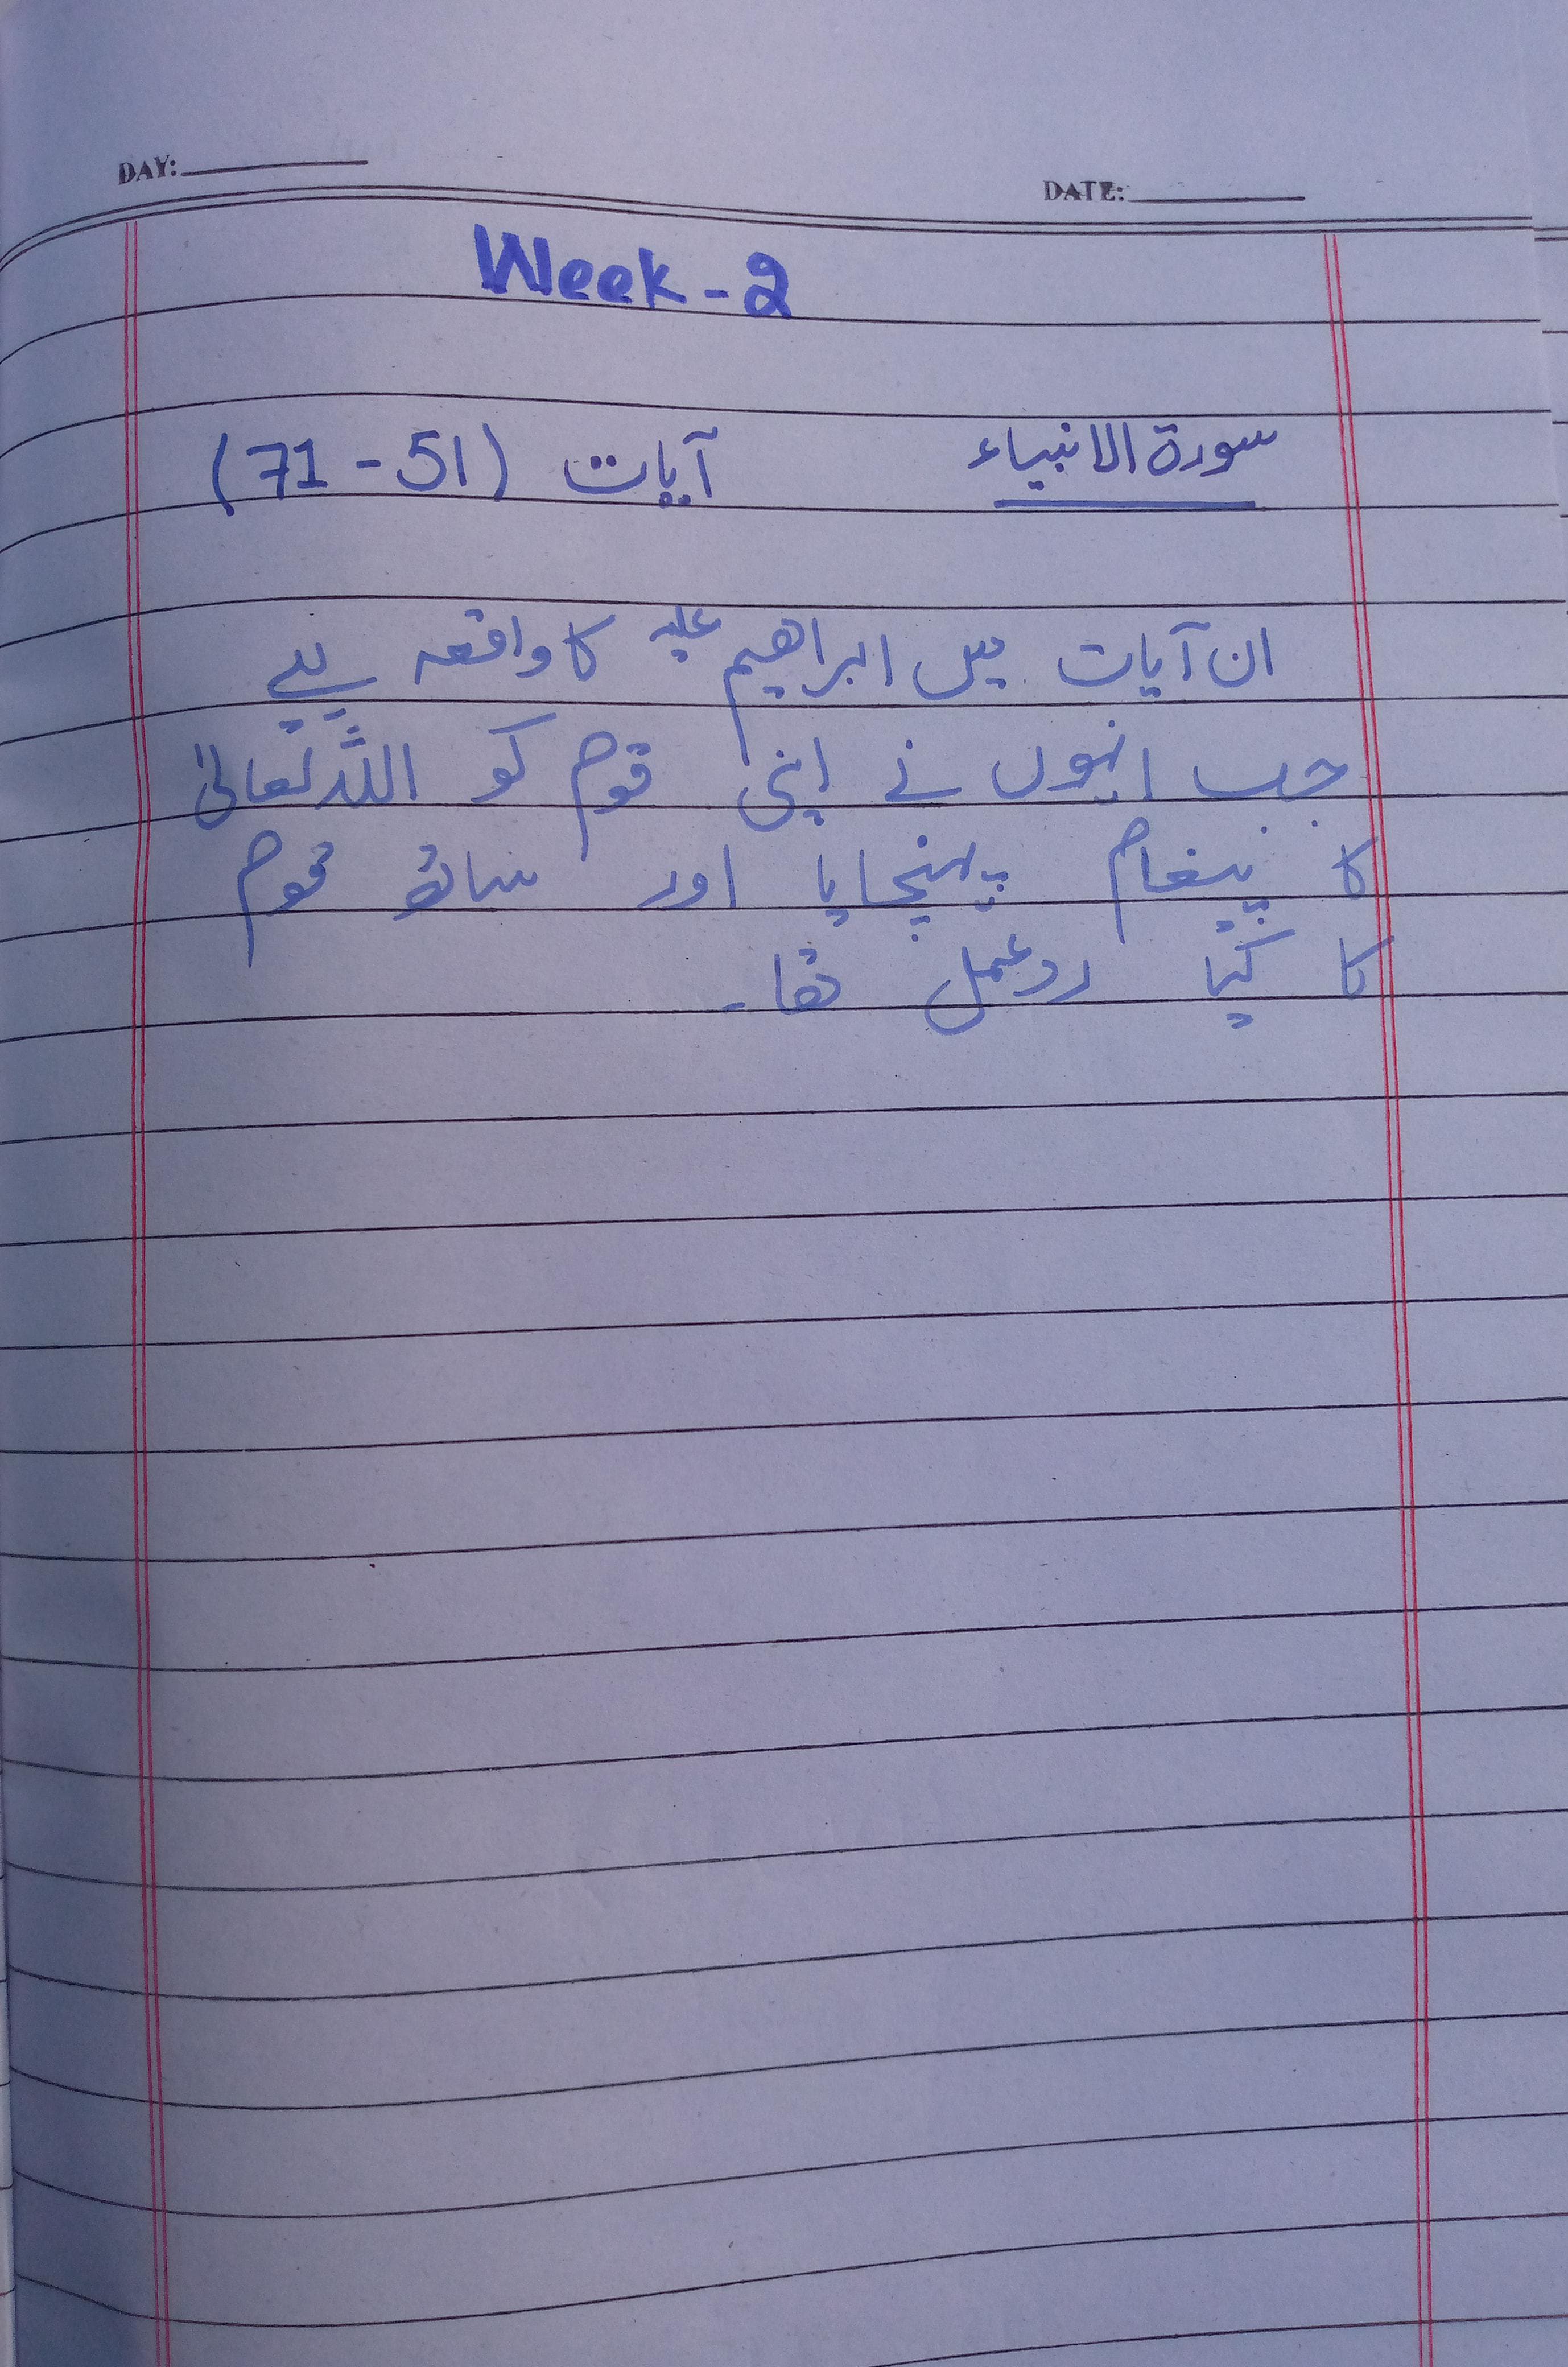 DAY: DATE:
Week - 2
سورة الانبیاء آیات (51 - 71)
ان آیات میں ابراهیم علیہ کا واقعہ ہے
جب انہوں نے اپنی قوم کو اللہ تعالیٰ
کا پیغام پہنچایا اور ساتھ قوم
کا کیا ردعمل تھا۔